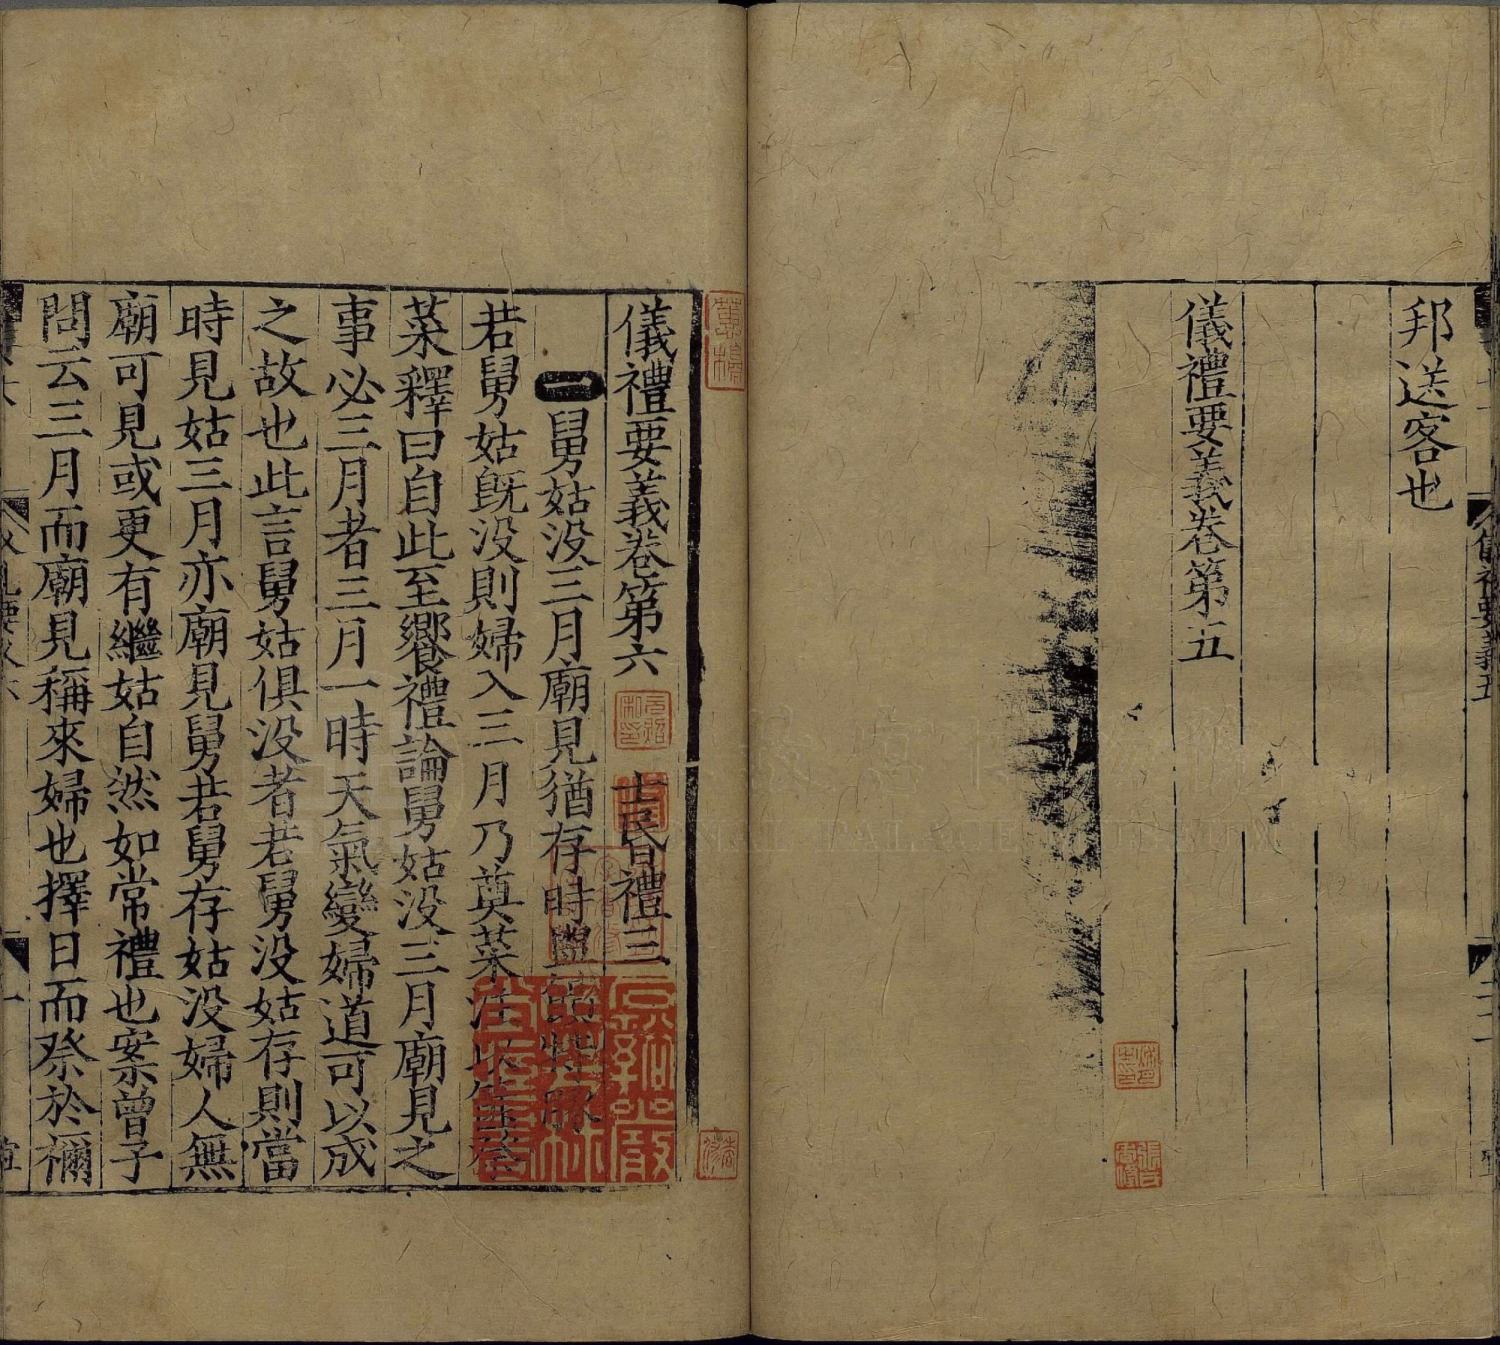 邦送客也
儀禮要義卷第五
儀禮要義五
儀禮要義卷第六 士昏禮三
一 舅姑没三月廟見猶存時盥饋特豚
若舅姑既没則婦入三月乃奠菜
菜釋曰自此至饗禮論舅姑没三月廟見之
事必三月者三月一時天氣變婦道可以成
之故也此言舅姑俱没者若舅没姑存則當
時見姑三月亦廟見舅若舅存姑没婦人無
廟可見或更有繼姑自然如常禮也案曾子
問云三月而廟見稱來婦也擇日而祭於禰